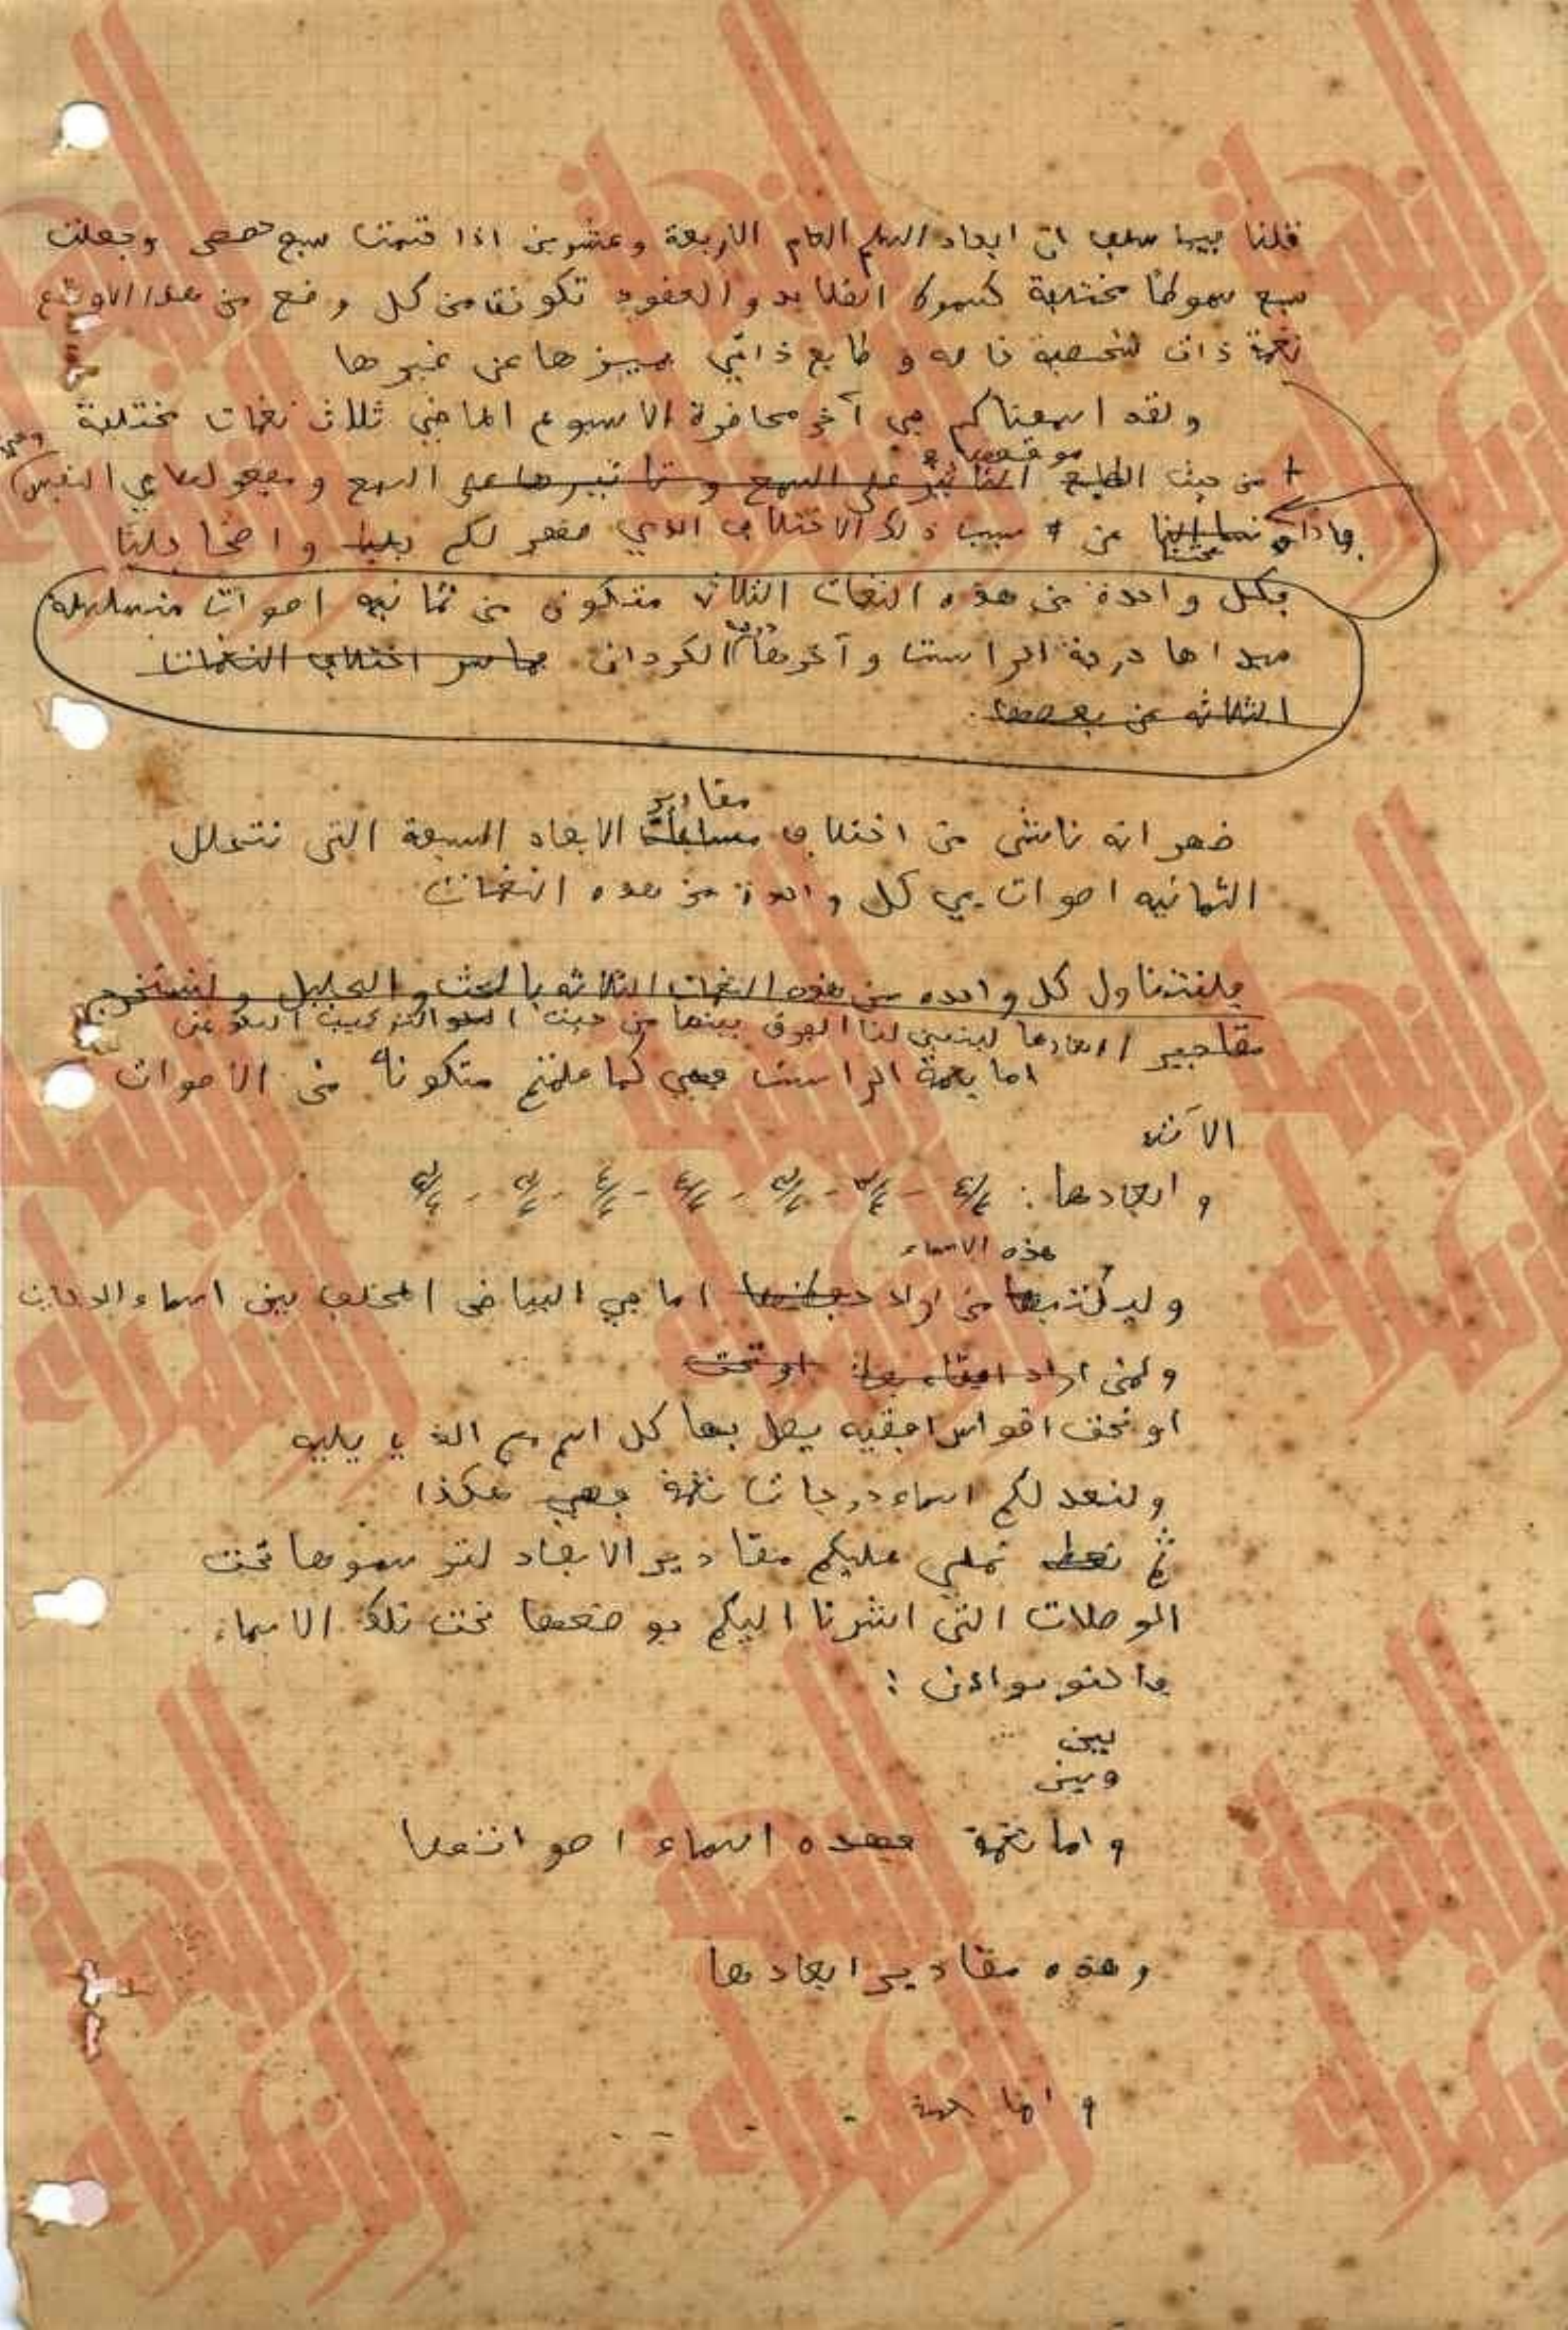 قلنا فيما سبق ان ابعاد السلم العام الاربعة وعشرين اذا قسمت سبع حصص وجعلت
سبع سموطا مختلفة كسموط القلايد والعقود تكونت من كل وضع من هذه الاوضاع
نغمة ذات شخصية خاصه وطابع ذاتي يميزها عن غيرها
ولقد اسمعناكم في آخر محاضرة الاسبوع الماضي ثلاث نغمات مختلفة
موقعها
+ من حيث الطابع التأثير على السمع وتأثيرها على السمع ومفعولها في النفس
فاذا عن سبب ذلك الاختلاف الذي ظهر لكم جليا واضحا جليا
فكل واحدة من هذه النغمات الثلاث متكون من ثمانيه اصوات متسلسله
مبداها درجة الراست وآخرها درجة الكردان فما سر اختلاف النغمات
الثلاثه عن بعضها.
مقادير
ظهر انه ناشئ من اختلاف الابعاد السبعة التي تتخلل
الثمانيه اصوات في كل واحدة من هذه النغمات
فلنتناول كل واحده من هذه النغمات الثلاثه بالبحث والتحليل ولنستخرج
مقادير ابعادها ليتبين لنا الفرق بينها من حيث التركيب
اما نغمة الراست فهي كما علمتم متكونة من الاصوات
الآتيه
وابعادها : ٤/٤ - ٣/٤ - ٣/٤ - ٤/٤ - ٤/٤ - ٣/٤ - ٣/٤
هذه الاسماء
وليكتبها من اراد اما في البياض المختلف بين اسماء الدرجات
ولمن اراد او تحت
او تحت اقواس افقيه يصل بها كل اسم مع الذي يليه
ولنعد لكم اسماء درجات نغمة فهي هكذا
ثم نملي عليكم مقادير الابعاد لترسموها تحت
الوصلات التي اشرنا اليكم بوضعها تحت تلك الاسماء.
فاكتبوا اذن :
بين
وبين
واما نغمة فهذه اسماء اصواتها
وهذه مقادير ابعادها
واما نغمة - - - -